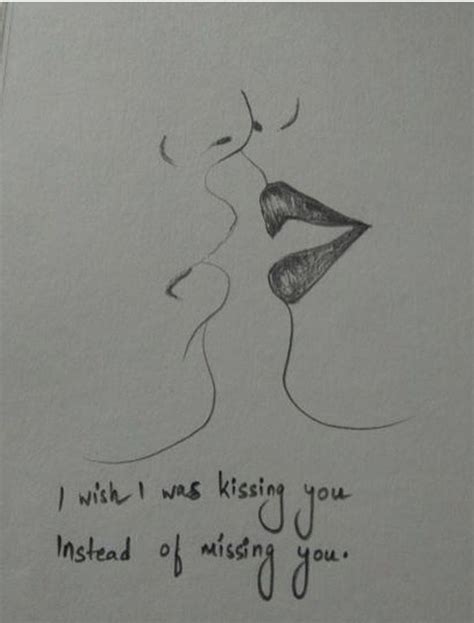 I wish I was kissing you
Instead of missing you.